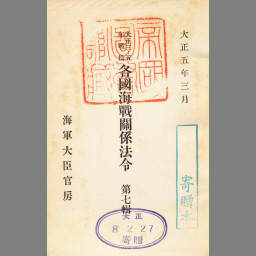 大正五年三月
各國海戰關係法令 第七輯
海軍大臣官房
寄贈本
大正
8.2.27
寄贈